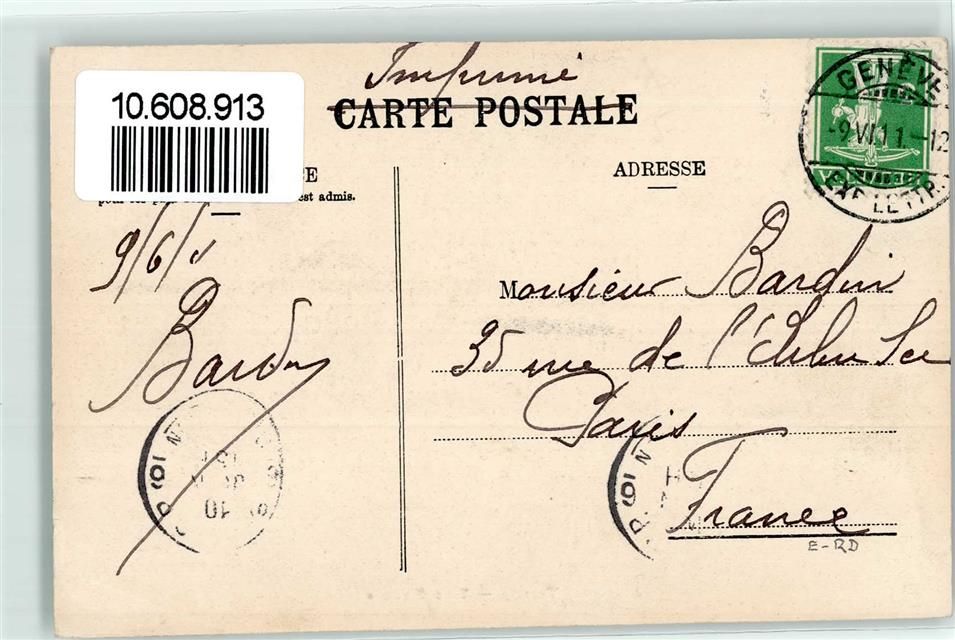 10.608.913
Imprimé
CARTE POSTALE
ADRESSE
CE
est admis.
GENÈVE
-9.VI.11.-12
EXP. LETTR.
9/6/11
Bardin
Monsieur Bardin
35 rue de l'Arbre Sec
Paris
France
E-RD